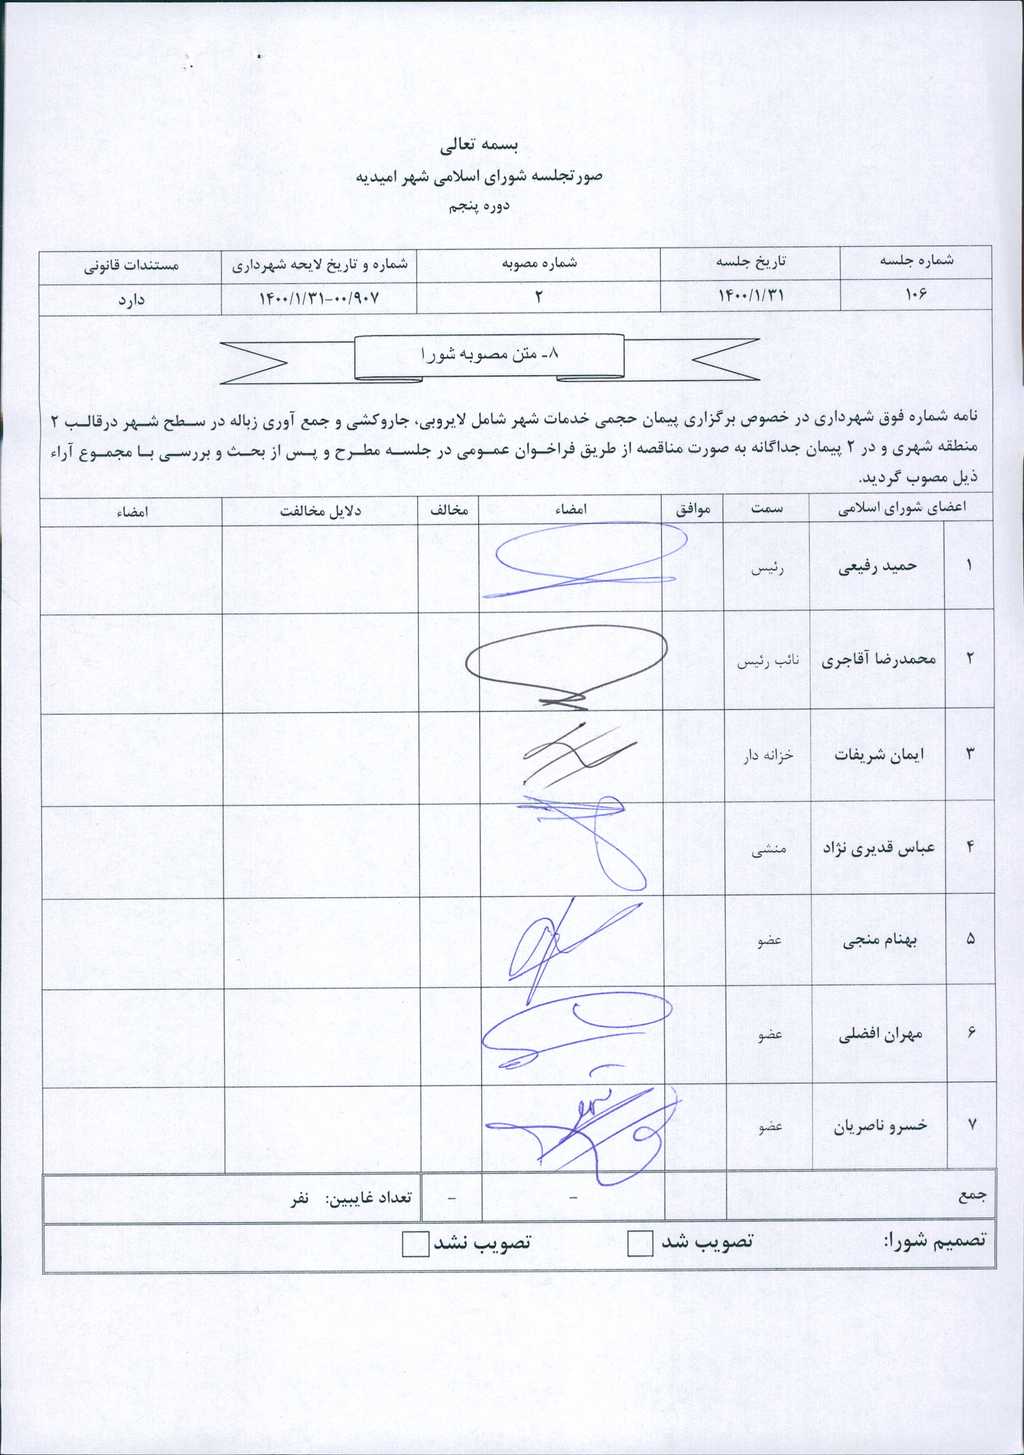 بسمه تعالی
صورتجلسه شورای اسلامی شهر امیدیه
دوره پنجم
شماره جلسه تاریخ جلسه شماره مصوبه شماره و تاریخ لایحه شهرداری مستندات قانونی
۱۰۶ ۱۴۰۰/۱/۳۱ ۲ ۱۴۰۰/۱/۳۱-۰۰/۹۰۷ دارد
۸- متن مصوبه شورا
نامه شماره فوق شهرداری در خصوص برگزاری پیمان حجمی خدمات شهر شامل لایروبی، جاروکشی و جمع آوری زباله در سطح شهر درقالب ۲
منطقه شهری و در ۲ پیمان جداگانه به صورت مناقصه از طریق فراخوان عمومی در جلسه مطرح و پس از بحث و بررسی با مجموع آراء
ذیل مصوب گردید.
اعضای شورای اسلامی سمت موافق امضاء مخالف دلایل مخالفت امضاء
۱ حمید رفیعی رئیس
۲ محمدرضا آقاجری نائب رئیس
۳ ایمان شریفات خزانه دار
۴ عباس قدیری نژاد منشی
۵ بهنام منجی عضو
۶ مهران افضلی عضو
۷ خسرو ناصریان عضو
جمع - - تعداد غایبین: نفر
تصمیم شورا: تصویب شد تصویب نشد